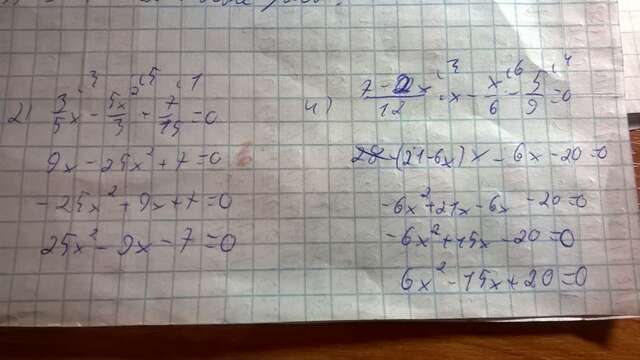 2) 3/5 x - 5x²/3 + 7/15 = 0
9x - 25x² + 7 = 0
-25x² + 9x + 7 = 0
25x² - 9x - 7 = 0
4) 7-2x/12 · x - x/6 - 5/9 = 0
(21-6x)x - 6x - 20 = 0
-6x² + 21x - 6x - 20 = 0
-6x² + 15x - 20 = 0
6x² - 15x + 20 = 0